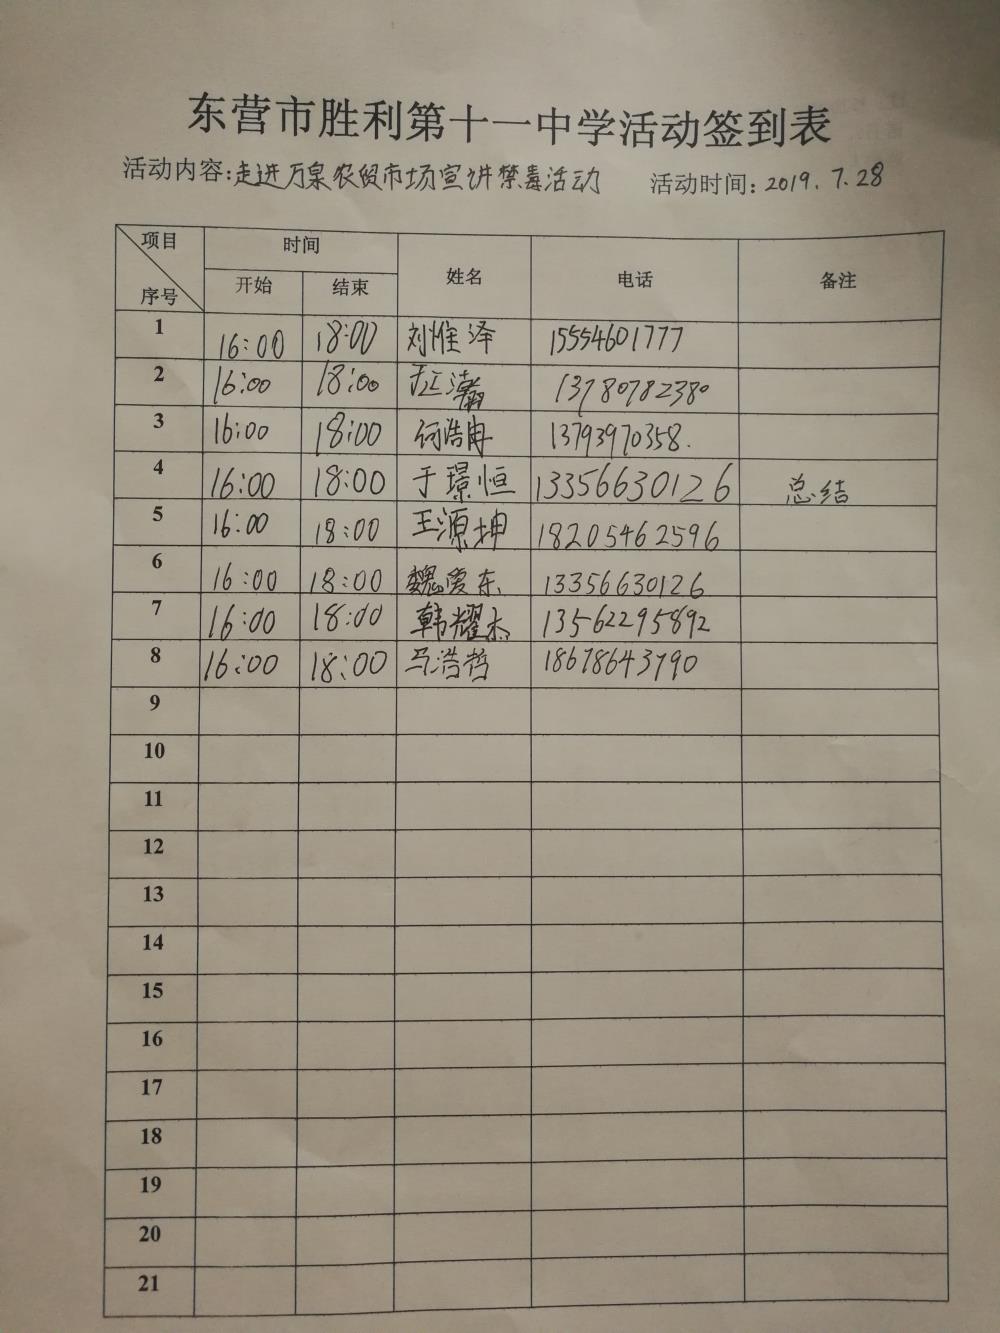 东营市胜利第十一中学活动签到表
活动内容:走进万泉农贸市场宣讲禁毒活动 活动时间:2019.7.28
项目 时间 姓名 电话 备注
序号 开始 结束
1 16:00 18:00 刘惟泽 15554601777
2 16:00 18:00 13780782380
3 16:00 18:00 何浩冉 13793970358.
4 16:00 18:00 于璟恒 13356630126 总结
5 16:00 18:00 王源坤 18205462596
6 16:00 18:00 魏爱东 13356630126
7 16:00 18:00 韩耀杰 13562295892
8 16:00 18:00 马浩哲 18678643790
9
10
11
12
13
14
15
16
17
18
19
20
21